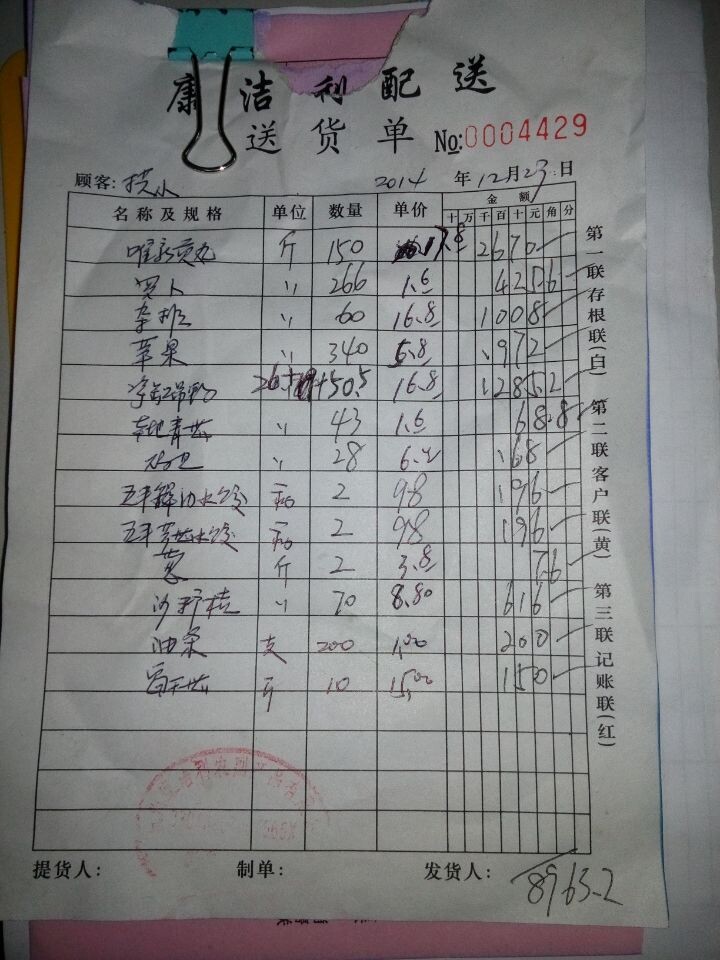 康洁利配送
送货单 No:0004429
顾客: 2014 年 12 月 23 日
名称及规格 单位 数量 单价 金额
十 万 千 百 十 元 角 分
斤 150 17.8 2670
〃 266 1.6 425.6
杂排 〃 60 16.8 1008
苹果 〃 340 5.8 1972
+50.5 16.8 1285.2
本地青菜 〃 43 1.6 68.8
〃 28 168
五丰 水饺 2 98 196
五丰 水饺 2 98 196
葱 斤 2 3.8 7.6
沙 桔 〃 70 8.80 616
油条 支 200 1.00 200
斤 10 15.00 150
第一联存根联(白) 第二联客户联(黄) 第三联记账联(红)
提货人: 制单: 发货人:
8963.2